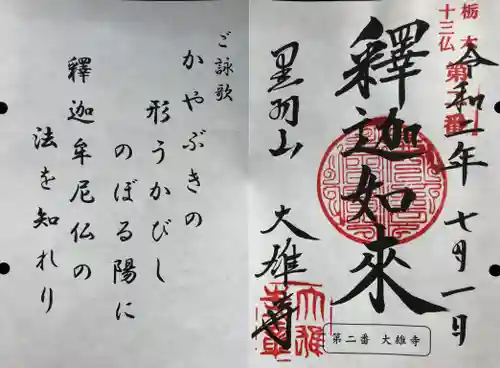 栃木
十三仏 第二番
令和二年 七月一日
釋迦如來
黒羽山
大雄寺
第二番 大雄寺
ご詠歌
かやぶきの
形うかびし
のぼる陽に
釋迦牟尼仏の
法を知れり